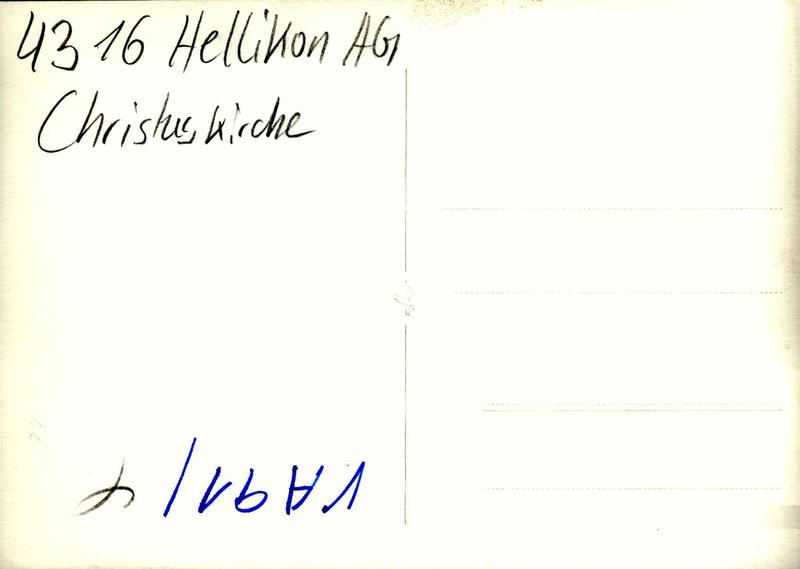 4316 Hellikon AG
Christuskirche